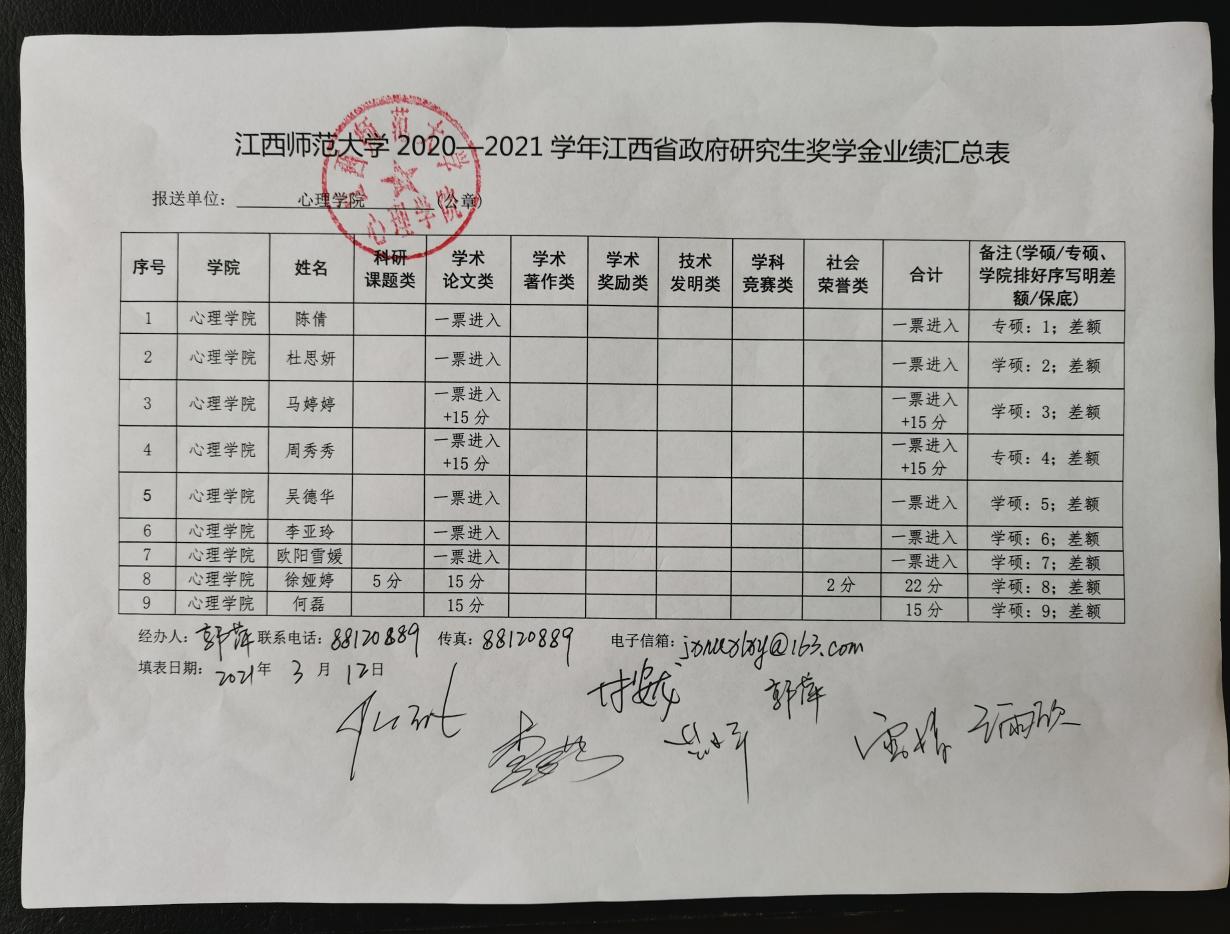 江西师范大学 2020—2021 学年江西省政府研究生奖学金业绩汇总表
报送单位： 心理学院 (公章)
江西师范大学
心理学院
序号 学院 姓名 科研课题类 学术论文类 学术著作类 学术奖励类 技术发明类 学科竞赛类 社会荣誉类 合计 备注(学硕/专硕、学院排好序写明差额/保底)
1 心理学院 陈倩 一票进入 一票进入 专硕：1；差额
2 心理学院 杜思妍 一票进入 一票进入 学硕：2；差额
3 心理学院 马婷婷 一票进入+15 分 一票进入+15 分 学硕：3；差额
4 心理学院 周秀秀 一票进入+15 分 一票进入+15 分 专硕：4；差额
5 心理学院 吴德华 一票进入 一票进入 学硕：5；差额
6 心理学院 李亚玲 一票进入 一票进入 学硕：6；差额
7 心理学院 欧阳雪媛 一票进入 一票进入 学硕：7；差额
8 心理学院 徐娅婷 5 分 15 分 2 分 22 分 学硕：8；差额
9 心理学院 何磊 15 分 15 分 学硕：9；差额
经办人：郭萍 联系电话：88120889 传真：88120889 电子信箱：
填表日期：2021年 3 月 12日
郭萍